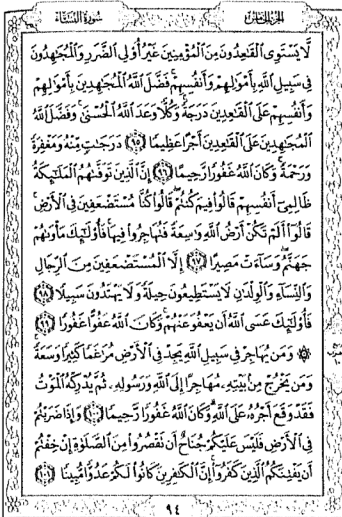 الجزء الخامس
سورة النساء
لَّا يَسْتَوِى الْقَٰعِدُونَ مِنَ الْمُؤْمِنِينَ غَيْرُ أُو۟لِى الضَّرَرِ وَالْمُجَٰهِدُونَ
فِى سَبِيلِ اللَّهِ بِأَمْوَٰلِهِمْ وَأَنفُسِهِمْ ۚ فَضَّلَ اللَّهُ الْمُجَٰهِدِينَ بِأَمْوَٰلِهِمْ
وَأَنفُسِهِمْ عَلَى الْقَٰعِدِينَ دَرَجَةً ۚ وَكُلًّا وَعَدَ اللَّهُ الْحُسْنَىٰ ۚ وَفَضَّلَ اللَّهُ
الْمُجَٰهِدِينَ عَلَى الْقَٰعِدِينَ أَجْرًا عَظِيمًا ۝٩٥ دَرَجَٰتٍ مِّنْهُ وَمَغْفِرَةً
وَرَحْمَةً ۚ وَكَانَ اللَّهُ غَفُورًا رَّحِيمًا ۝٩٦ إِنَّ الَّذِينَ تَوَفَّىٰهُمُ الْمَلَٰٓئِكَةُ
ظَالِمِىٓ أَنفُسِهِمْ قَالُوا۟ فِيمَ كُنتُمْ ۖ قَالُوا۟ كُنَّا مُسْتَضْعَفِينَ فِى الْأَرْضِ ۚ
قَالُوٓا۟ أَلَمْ تَكُنْ أَرْضُ اللَّهِ وَٰسِعَةً فَتُهَاجِرُوا۟ فِيهَا ۚ فَأُو۟لَٰٓئِكَ مَأْوَىٰهُمْ
جَهَنَّمُ ۖ وَسَآءَتْ مَصِيرًا ۝٩٧ إِلَّا الْمُسْتَضْعَفِينَ مِنَ الرِّجَالِ
وَالنِّسَآءِ وَالْوِلْدَٰنِ لَا يَسْتَطِيعُونَ حِيلَةً وَلَا يَهْتَدُونَ سَبِيلًا ۝٩٨
فَأُو۟لَٰٓئِكَ عَسَى اللَّهُ أَن يَعْفُوَ عَنْهُمْ ۚ وَكَانَ اللَّهُ عَفُوًّا غَفُورًا ۝٩٩
۞ وَمَن يُهَاجِرْ فِى سَبِيلِ اللَّهِ يَجِدْ فِى الْأَرْضِ مُرَٰغَمًا كَثِيرًا وَسَعَةً ۚ
وَمَن يَخْرُجْ مِنۢ بَيْتِهِۦ مُهَاجِرًا إِلَى اللَّهِ وَرَسُولِهِۦ ثُمَّ يُدْرِكْهُ الْمَوْتُ
فَقَدْ وَقَعَ أَجْرُهُۥ عَلَى اللَّهِ ۗ وَكَانَ اللَّهُ غَفُورًا رَّحِيمًا ۝١٠٠ وَإِذَا ضَرَبْتُمْ
فِى الْأَرْضِ فَلَيْسَ عَلَيْكُمْ جُنَاحٌ أَن تَقْصُرُوا۟ مِنَ الصَّلَوٰةِ إِنْ خِفْتُمْ
أَن يَفْتِنَكُمُ الَّذِينَ كَفَرُوٓا۟ ۚ إِنَّ الْكَٰفِرِينَ كَانُوا۟ لَكُمْ عَدُوًّا مُّبِينًا ۝١٠١
٩٤